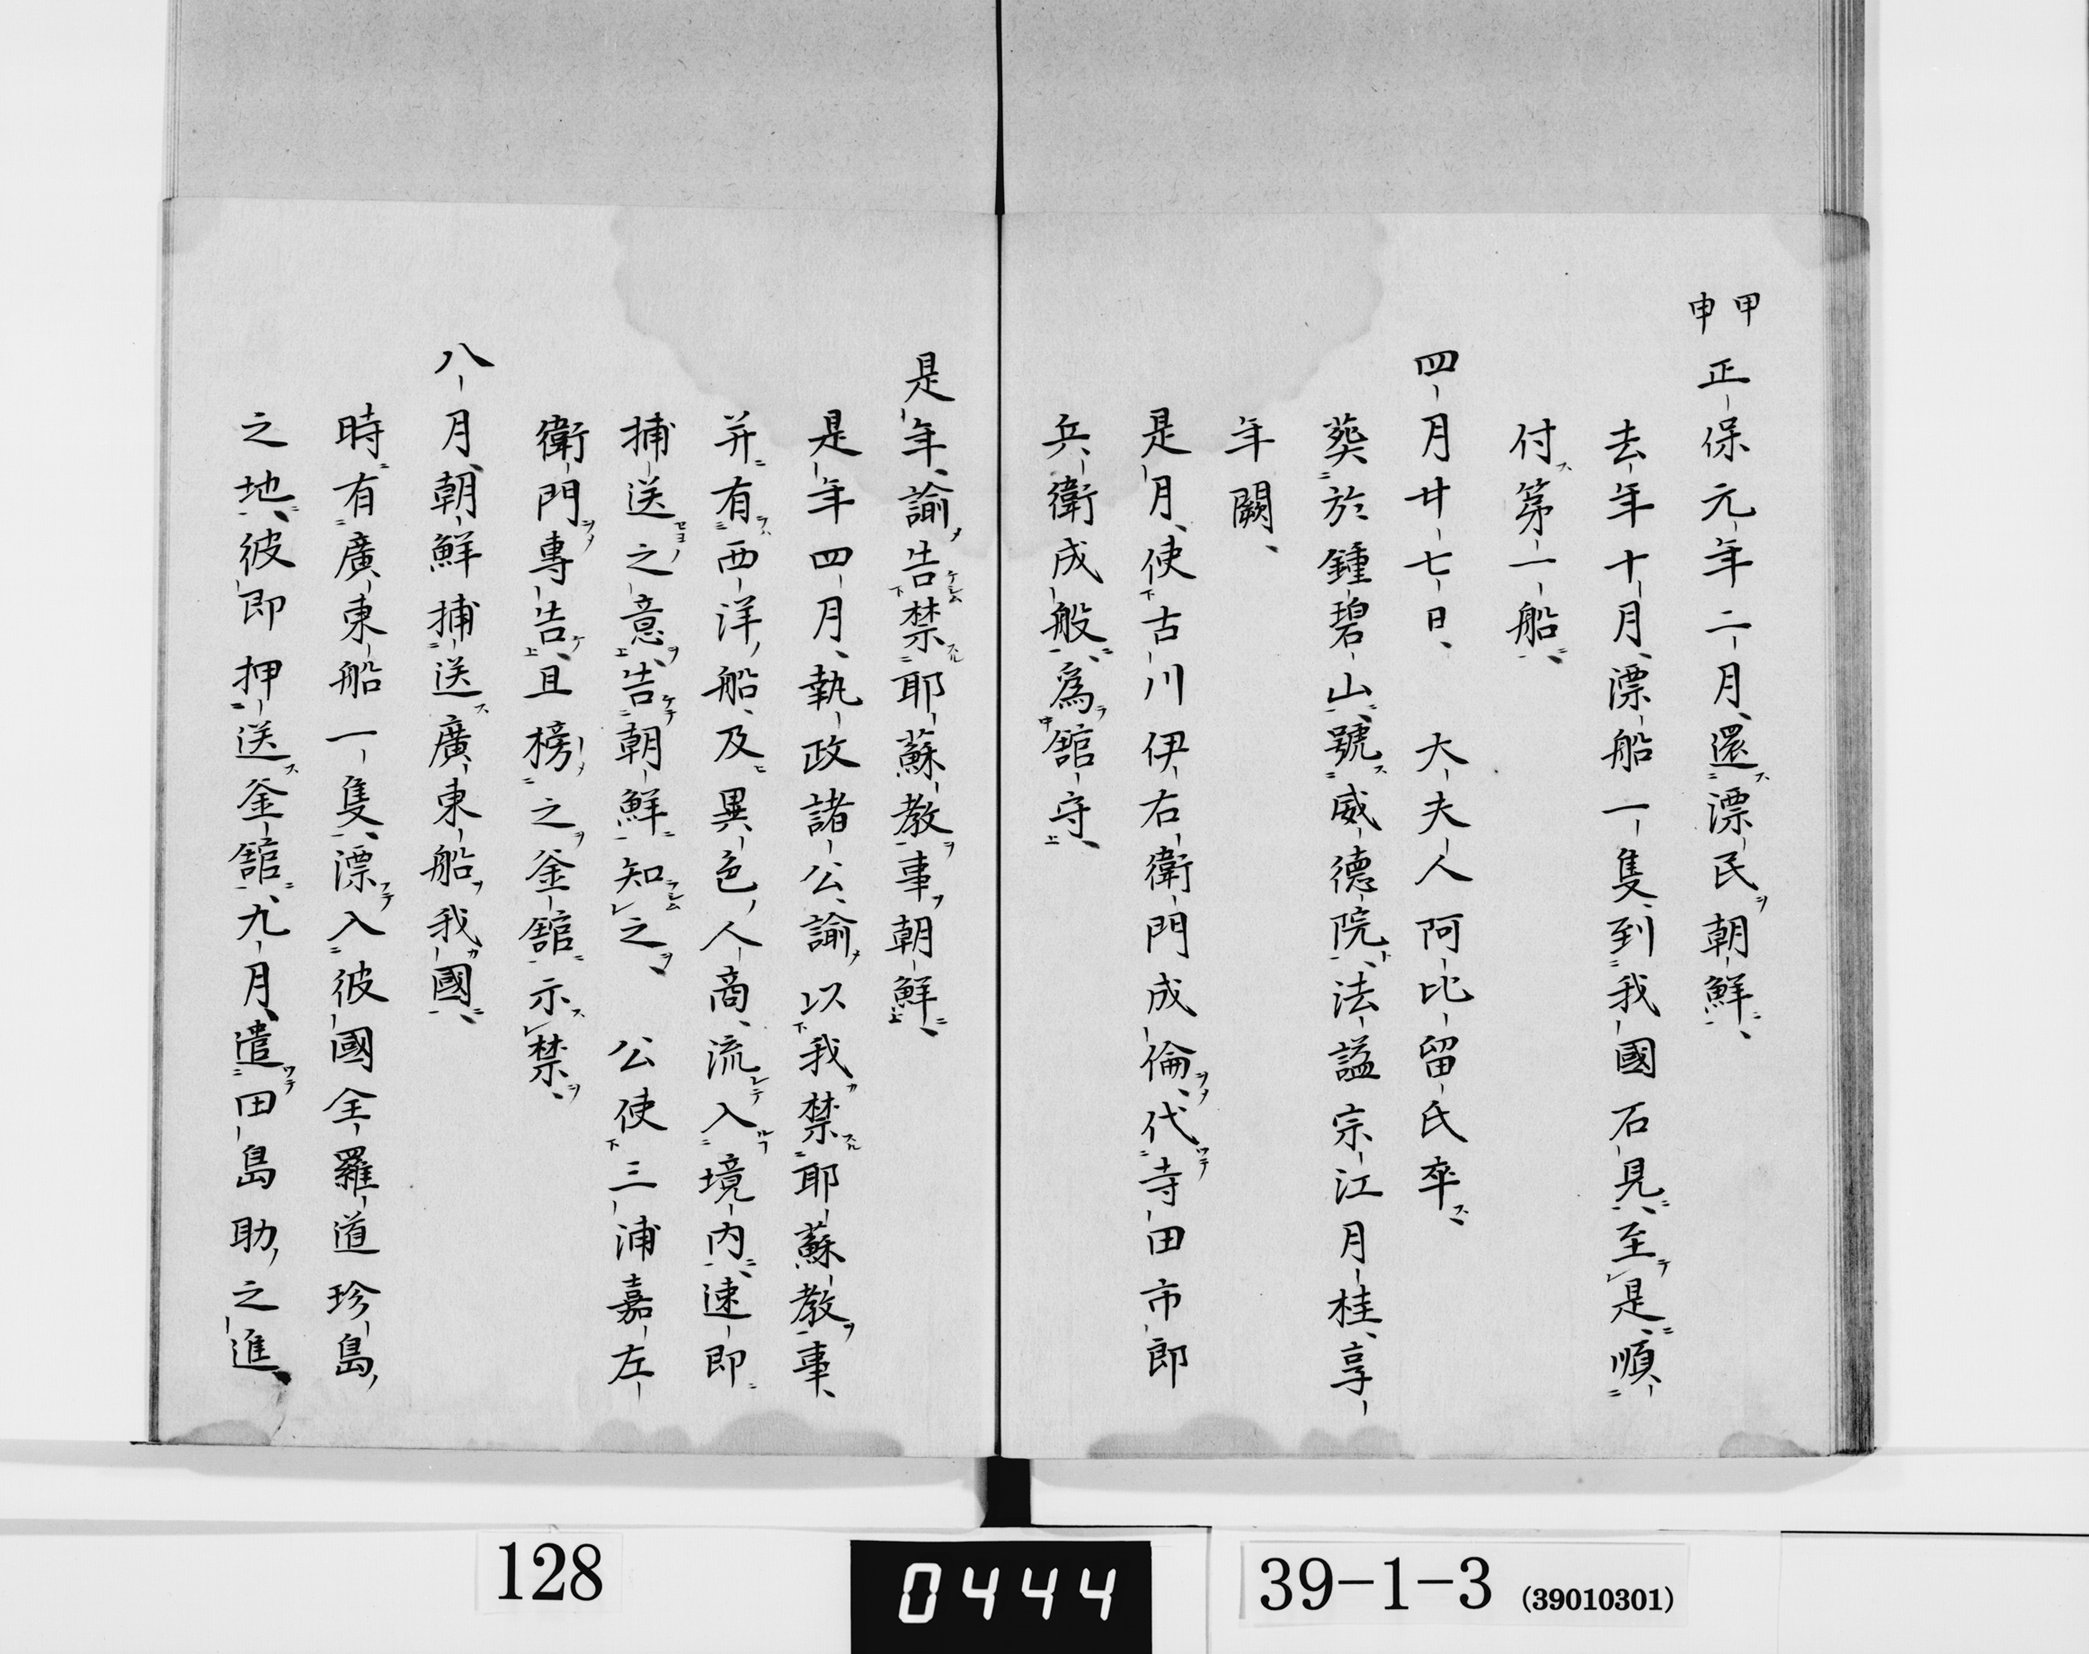 甲申
正保元年二月、還漂民朝鮮、
去年十月、漂船一隻、到我國石見、至是、順
付第一船、
四月廿七日、　大夫人阿比留氏卒、
葬於鍾碧山、號威德院、法謚宗江月桂、享
年闕、
是月、使古川伊右衛門成倫、代寺田市郎
兵衛成般、爲舘守、
是年、諭告禁耶蘇教事朝鮮、
是年四月、執政諸公、諭以我禁耶蘇教事、
并有西洋船、及異色人商、流入境内、速即
捕送之意、告朝鮮知之、　公使三浦嘉左
衛門專告、且榜之釜舘示禁、
八月、朝鮮捕送廣東船我國、
時有廣東船一隻、漂入彼國全羅道珍島
之地、彼即押送釜舘、九月、遣田島助之進、
128
0444
39-1-3 (39010301)